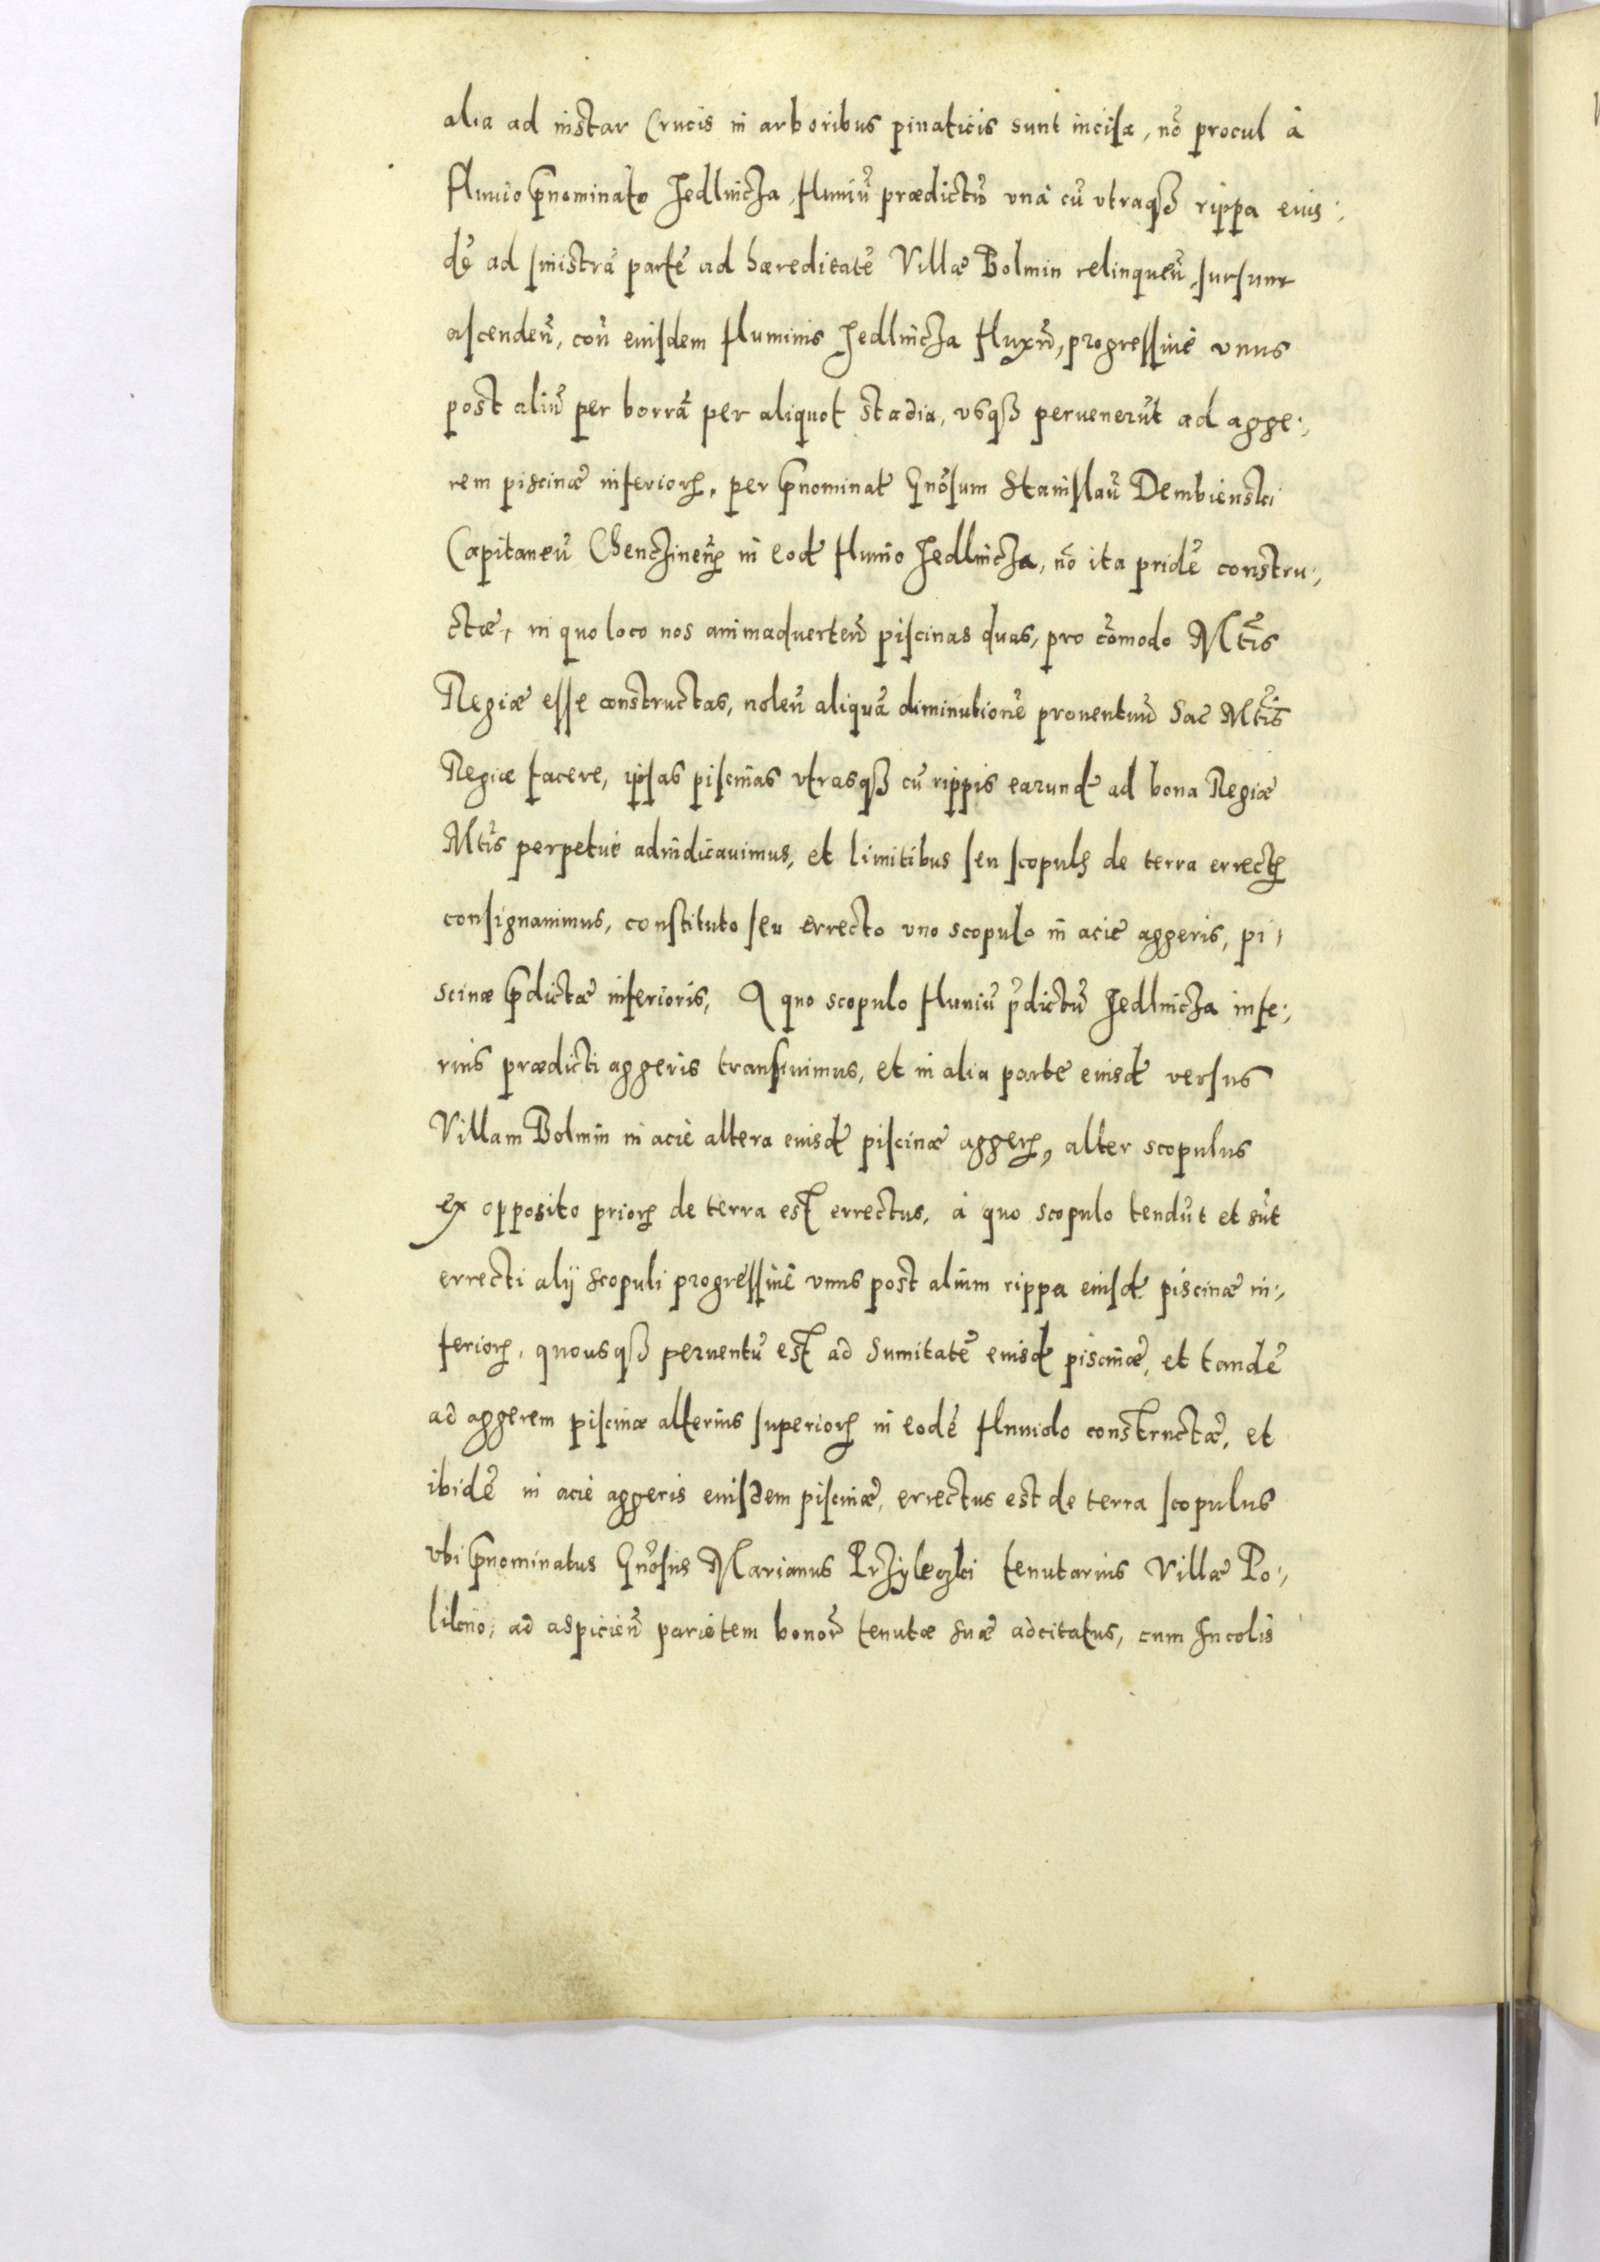 alia ad instar Crucis in arboribus pinaticis sunt incisæ, nō procul à
fluuio p̄nominato Jedlnicza, fluuiū prædictū vnà cū vtraqȝ rippa eius:,
dē ad sinistrā partē ad hæreditatē Villæ Bolmin relinqueñ, sursum
ascendeñ, con̄ eiusdem fluminis Jedlnicza fluxū, progressiuè vnus
post aliū per borrā per aliquot stadia, vsqȝ peruenerūt ad agge:,
rem piscinæ inferioꝝ, per p̄nominat Gnōsum Stanislaū Dembienski
Capitaneū Chenczineñ in eod fluuio Jedlnicza, nō ita pridē constru:,
ctæ, in quo loco nos animaduerteñ piscinas duas, pro cōmodo Mt̄is
Regiæ esse constructas, noleñ aliquā diminutionē prouentuū Sac Mt̄is
Regiæ facere, ipsas piscinas vtrasqȝ cū rippis earund ad bona Regiæ
Mt̄is perpetuè adiudicauimus, et limitibus seu scopulꝭ de terra errectꝭ
consignauimus, constituto seu errecto vno scopulo in acie aggeris, pi,
scinæ p̄dictæ inferioris, A quo scopulo fluuiū p̄dictū Jedlnicza infe:,
rius prædicti aggeris transiuimus, et in alia parte eiusd versus
Villam Bolmin in aciè altera eiusd piscinæ aggeꝝ, alter scopulus
ex opposito prioꝝ de terra est errectus, à quo scopulo tendūt et sūt
errecti alij scopuli progressiuè vnus post alium rippa eiusd piscinæ in:,
ferioꝝ, quousqȝ peruentū est ad Sumitatē eiusd piscinæ, et tandē
ad aggerem piscinæ alterius superioꝝ in eodē fluuiolo constructæ, et
ibidē in aciè aggeris eiusdem piscinæ, errectus est de terra scopulus
vbi p̄nominatus Gnōsus Marianus Przyleczki tenutarius Villæ Po:,
lilcno, ad aspicieñ parietem bonoꝝ tenutæ suæ adcitatus, cum Incolis